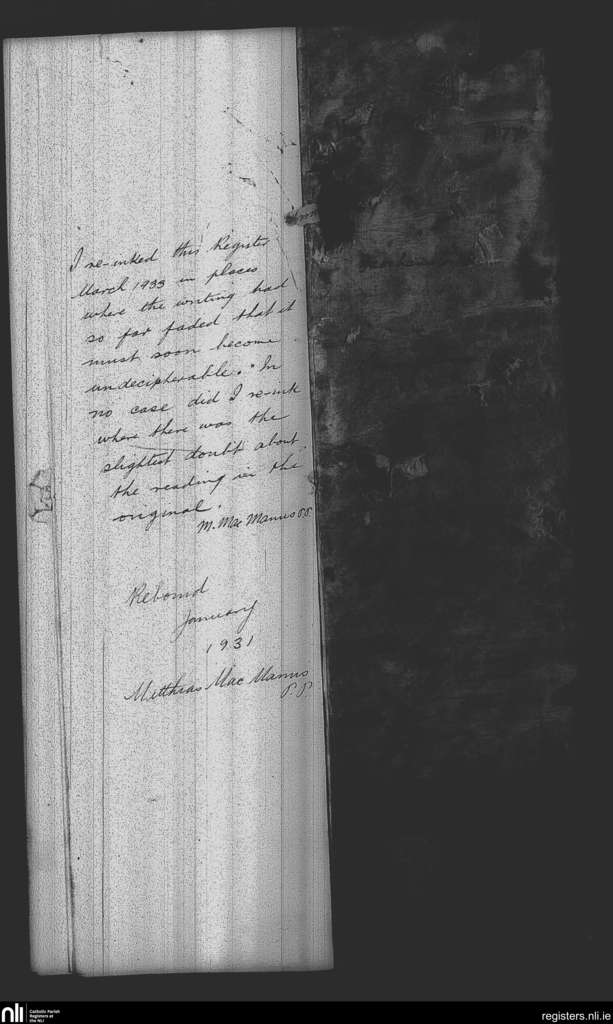 I re-inked this Register
March 1933 in places
where the writing had
so far faded that it
must soon become
undecipherable. In
no case did I re-ink
where there was the
slightest doubt about
the reading in the
original.
M. Mac Manus P.P.
Rebound
January
1931
Matthias Mac Manus
P.P.
nli
Catholic Parish
Registers at
the NLI
registers.nli.ie